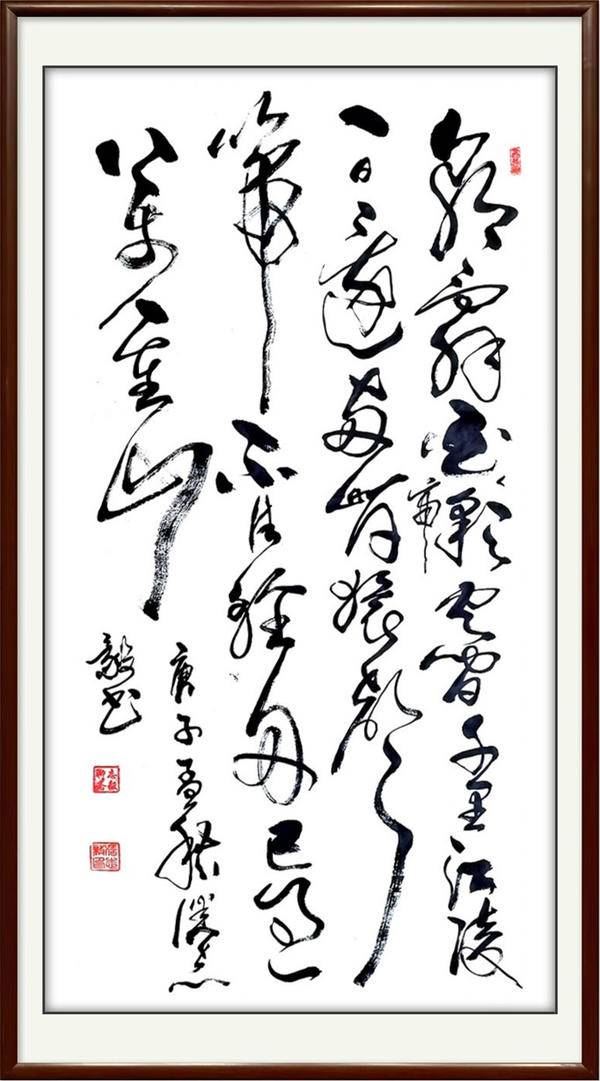 朝辭白帝彩雲間千里江陵
一日還兩岸猿聲
啼不住輕舟已過
萬重山
庚子孟秋滕志
毅书